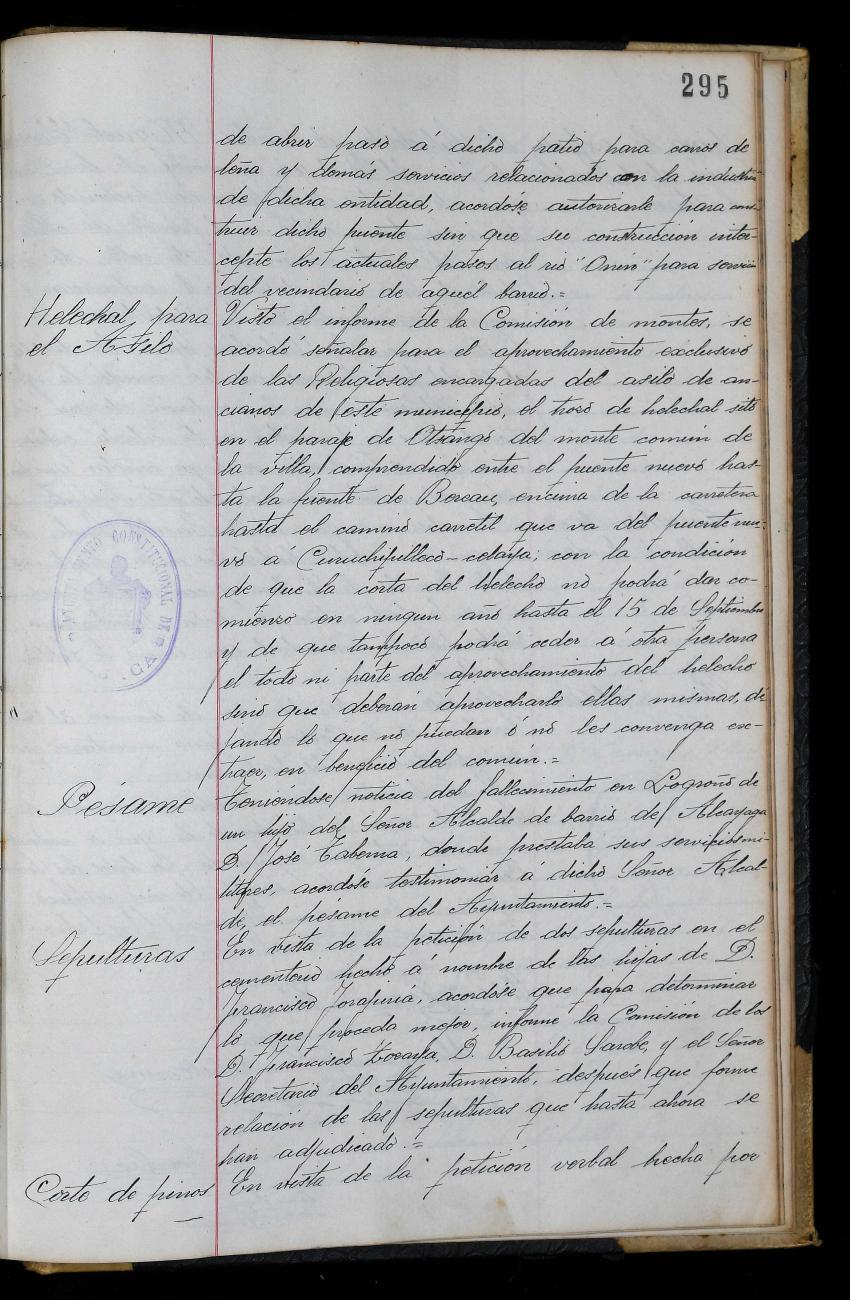 295
de abrir paso á dicho patio para carros de
leña y demás servicios relacionados con la industria
de dicha entidad, acordóse autorizarle para cons-
truir dicho puente sin que su construccion inter-
cepte los actuales pasos al rio "Onin" para servicio
del vecindario de aquél barrio.=
Helechal para
el Asilo
Visto el informe de la Comisión de montes, se
acordó señalar para el aprovechamiento exclusivo
de las Religiosas encargadas del asilo de an-
cianos de este municipio, el trozo de helechal sito
en el paraje de Otsango del monte común de
la villa, comprendido entre el puente nuevo has-
ta la fuente de Bereau, encima de la carretera
hasta el camino carretil que va del puente nue-
vo á Curuchipilleco-celaya; con la condición
de que la corta del helecho no podrá dar co-
mienzo en ningun año hasta el 15 de Septiembre
y de que tampoco podrá ceder á otra persona
el todo ni parte del aprovechamiento del helecho
sinó que deberán aprovecharlo ellas mismas, de-
jando lo que no puedan ó nó les convenga ex-
traer, en beneficio del común.=
AYUNTAMIENTO CONSTITUCIONAL DE
Pésame
Teniéndose noticia del fallecimiento en Logroño de
un hijo del Señor Alcalde de barrio de Alcayaga
D. José Taberna, donde prestaba sus servicios mi-
litares, acordóse testimoniar á dicho Señor Alcal-
de, el pésame del Ayuntamiento.=
Sepulturas
En vista de la petición de dos sepulturas en el
cementerio hecho á nombre de las hijas de D.
Francisco acordóse que para determinar
lo que proceda mejor, informe la Comisión de los
D. Francisco D. Basilio Sarobe, y el Señor
Secretario del Ayuntamiento, después que forme
relación de las sepulturas que hasta ahora se
han adjudicado.=
Corte de pinos
En vista de la petición verbal hecha por